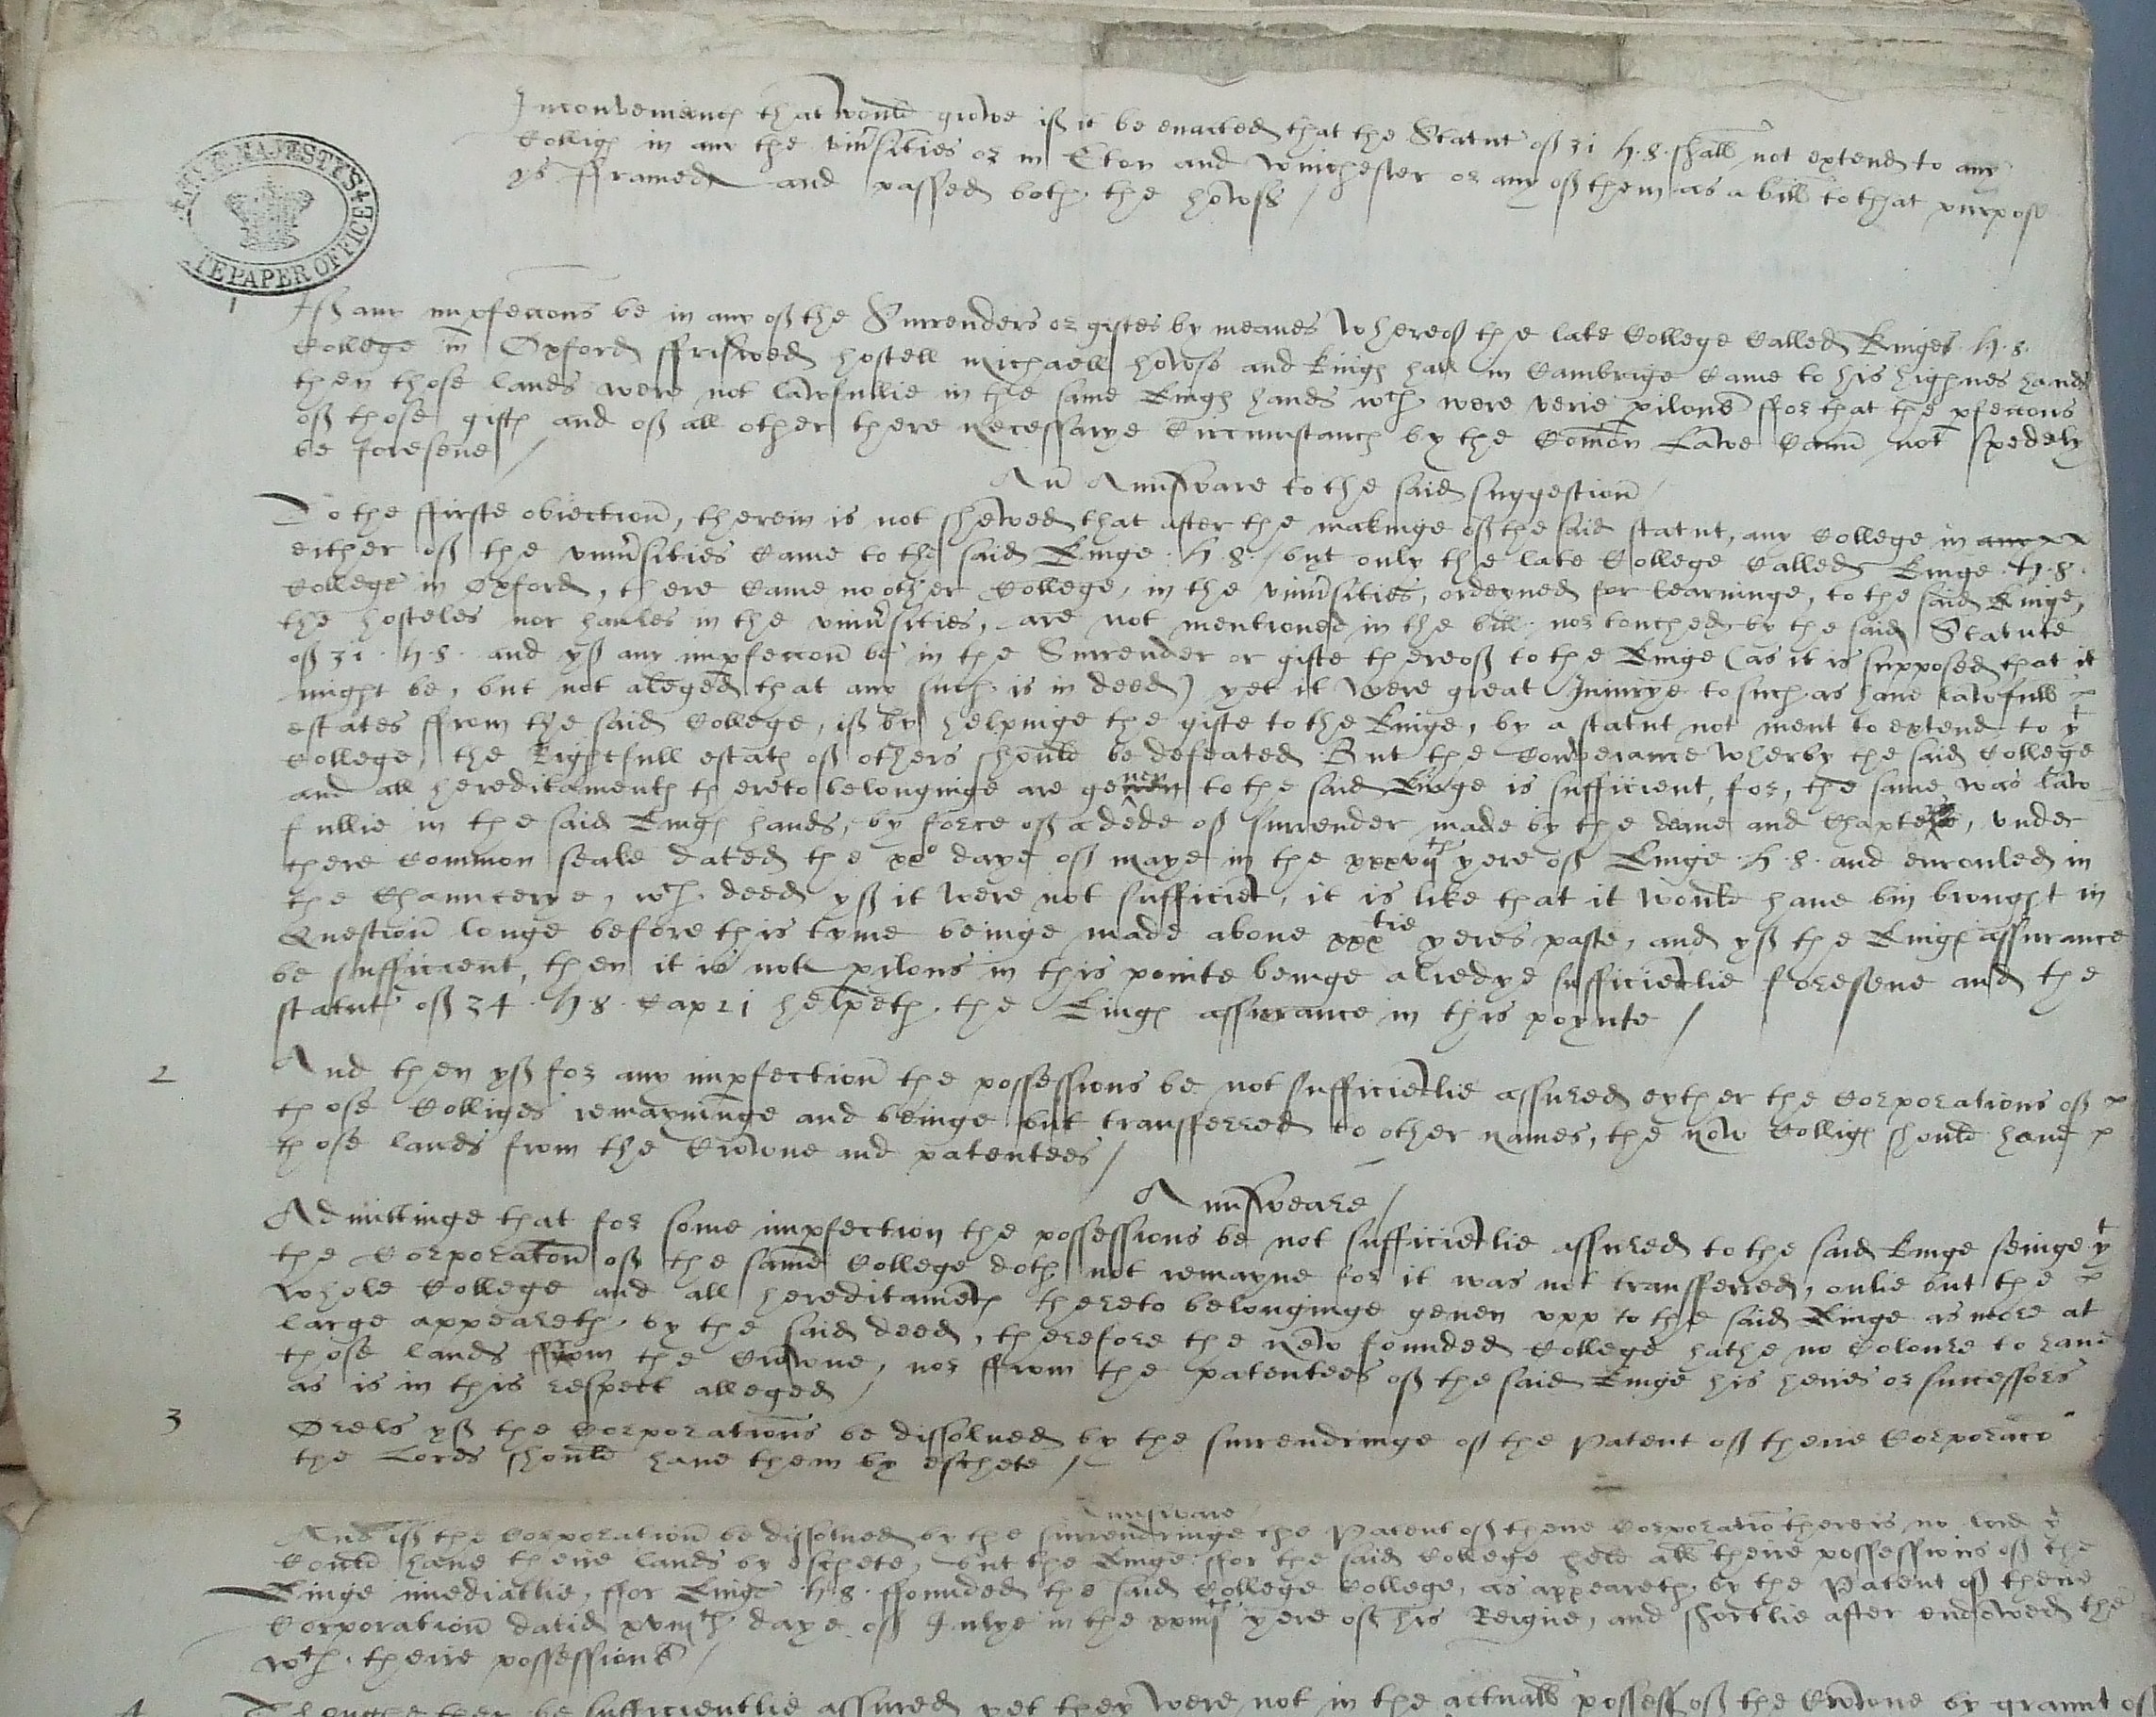 Inconvenienc that would growe if it be enacted that the Statut of 31 H.8. shall not extend to any
Collig in any the univsities or in Eton and Winchester or any of them as a bill to that purpose
ys fframed and passed both the howss /
HER MAJESTY'S
STATE PAPER OFFICE
1
If any impfeccons be in any of the Surrenders or giftes by meanes whereof the late College Called Kinges H.8.
College in Oxford ffriswed hostell Michaell howse and kings hall in Cambrige Came to his highnes hands
then those lands were not lawfullie in the same Kings hands wch were verie pilous ffor that the pfeccons
of those gifts and of all other there necessarye Circumstancs by the Comon Lawe Cann not spedely
be foresene /
An Aunsware to the said suggestion /
To the ffirste obiection, therein is not shewed that after the makinge of the said statut, any College in
either of the univsities Came to the said Kinge H.8. / but only the late College Called Kinge H.8.
College in Oxford, there Came no other College, in the univsities, ordeyned for learninge, to the said Kinge,
the hosteles nor haules in the univsities, are not mentioned in the bill nor touched by the said Statute
of 31. H.8. and yf any impfeccon be in the Surrender or gifte thereof to the Kinge (as it is supposed that it
might be, but not aleged that any such is in deed) yet it were great Iniurye to such as have lawfull
estates ffrom the said College, if by helpinge the gifte to the Kinge, by a statut not ment to extend to yt
College, the Rightfull estats of others should be defeated. But the Conveiance wherby the said College
and all hereditaments thereto belonginge are geven to the said Kinge is sufficient, for, the same was law
fullie in the said Kings hands, by force of a dede of surrender made by the deane and Chapter, under
there Common seale dated the xxo daye of maye in the xxxvijth yere of Kinge H.8. and enrouled in
the Chauncerye, wch deed yf it were not sufficiet, it is like that it would have bin brought in
Question longe before this tyme beinge made above xxxtie yeres paste, and yf the Kings assurance
be sufficient, then it is not pilous in this pointe beinge alredye sufficietlie foresene and the
statut of 34. H.8. Cap 21 helpeth the Kings assurance in this poynte /
2
And then yf for any impfection the possessions be not sufficietlie assured eyther the Corporations of
those Colliges remayninge and beinge but transferred to other names, the new Colligs should have
those lands from the Crowne and patentees /
Aunsweare /
Admittinge that for some impfection the possessions be not sufficietlie assured to the said Kinge seinge yt
the Corporaton of the same College doth not remayne for it was not transferred, onlie but the
whole College and all hereditamets thereto belonginge geven upp to the said Kinge as more at
large appeareth by the said deed, therefore the new founded College hathe no Coloure to have
those lands ffrom the Crowne, nor ffrom the patentees of the said Kinge his heires or successors
as is in this respect alleged /
3
Orels yf the Corporations be dissolved by the surrendringe of the Patent of theire Corporacō
the Lords should have them by eschete /
Aunsware
And if the Corporation be dissolved by the surrendringe the Patent of theire Corporatiō there is no lord yt
Could have theire lands by eschete, but the Kinge ffor the said College held all theire possessions of the
Kinge imediatlie, ffor Kinge H.8. ffounded the said College College, as appeareth by the Patent of theire
Corporation datid xviijth daye of Iulye in the xxiiijth yere of his Reigne, and shortlie after endowed the
wth theire possessions /
4
Thoughe they be sufficientlie assured yet they were not in the actuall possess of the Crowne by graunt of